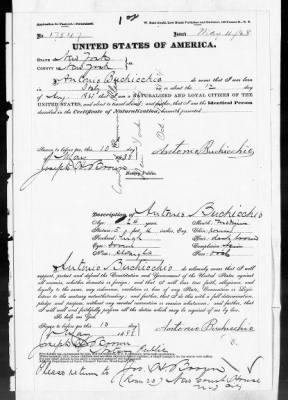 Application for Passport—Naturalized.
No. 17847 Issued May 11/88
UNITED STATES OF AMERICA.
STATE OF New York
COUNTY OF New York
I, Antonio Buchicchio do swear that I was born
in Italy on or about the 12 day
of Aug. that I am a NATURALIZED AND LOYAL CITIZEN OF THE
UNITED STATES, and about to travel abroad; and further, that I am the Identical Person
described in the Certificate of Naturalization, herewith presented.
Sworn to before me this 10
day of May 1888
Joseph Brown
Notary Public.
Antonio Buchicchio
Description of Antonio Buchicchio
Age: 26 years Mouth: medium
Stature: 5 feet 4 inches, Eng. Chin: round
Forehead: high Hair: dark brown
Eyes: brown Complexion:
Nose: straight Face: oval
I, Antonio Buchicchio do solemnly swear that I will
support, protect and defend the Constitution and Government of the United States against
all enemies, whether domestic or foreign; and that I will bear true faith, allegiance, and
loyalty to the same, any ordinance, resolution or law of any State, Convention or Legis-
lature to the contrary notwithstanding; and further, that I do this with a full determination,
pledge and purpose, without any mental reservation or evasion whatsoever; and, further,
that I will well and faithfully perform all the duties which may be required of me by law.
So help me God.
Sworn to before me this 10
day of May 1888
Joseph Brown
Notary Public
Antonio Buchicchio
Please return to Jos. Brown
Room 20 New Court House
N.Y. City